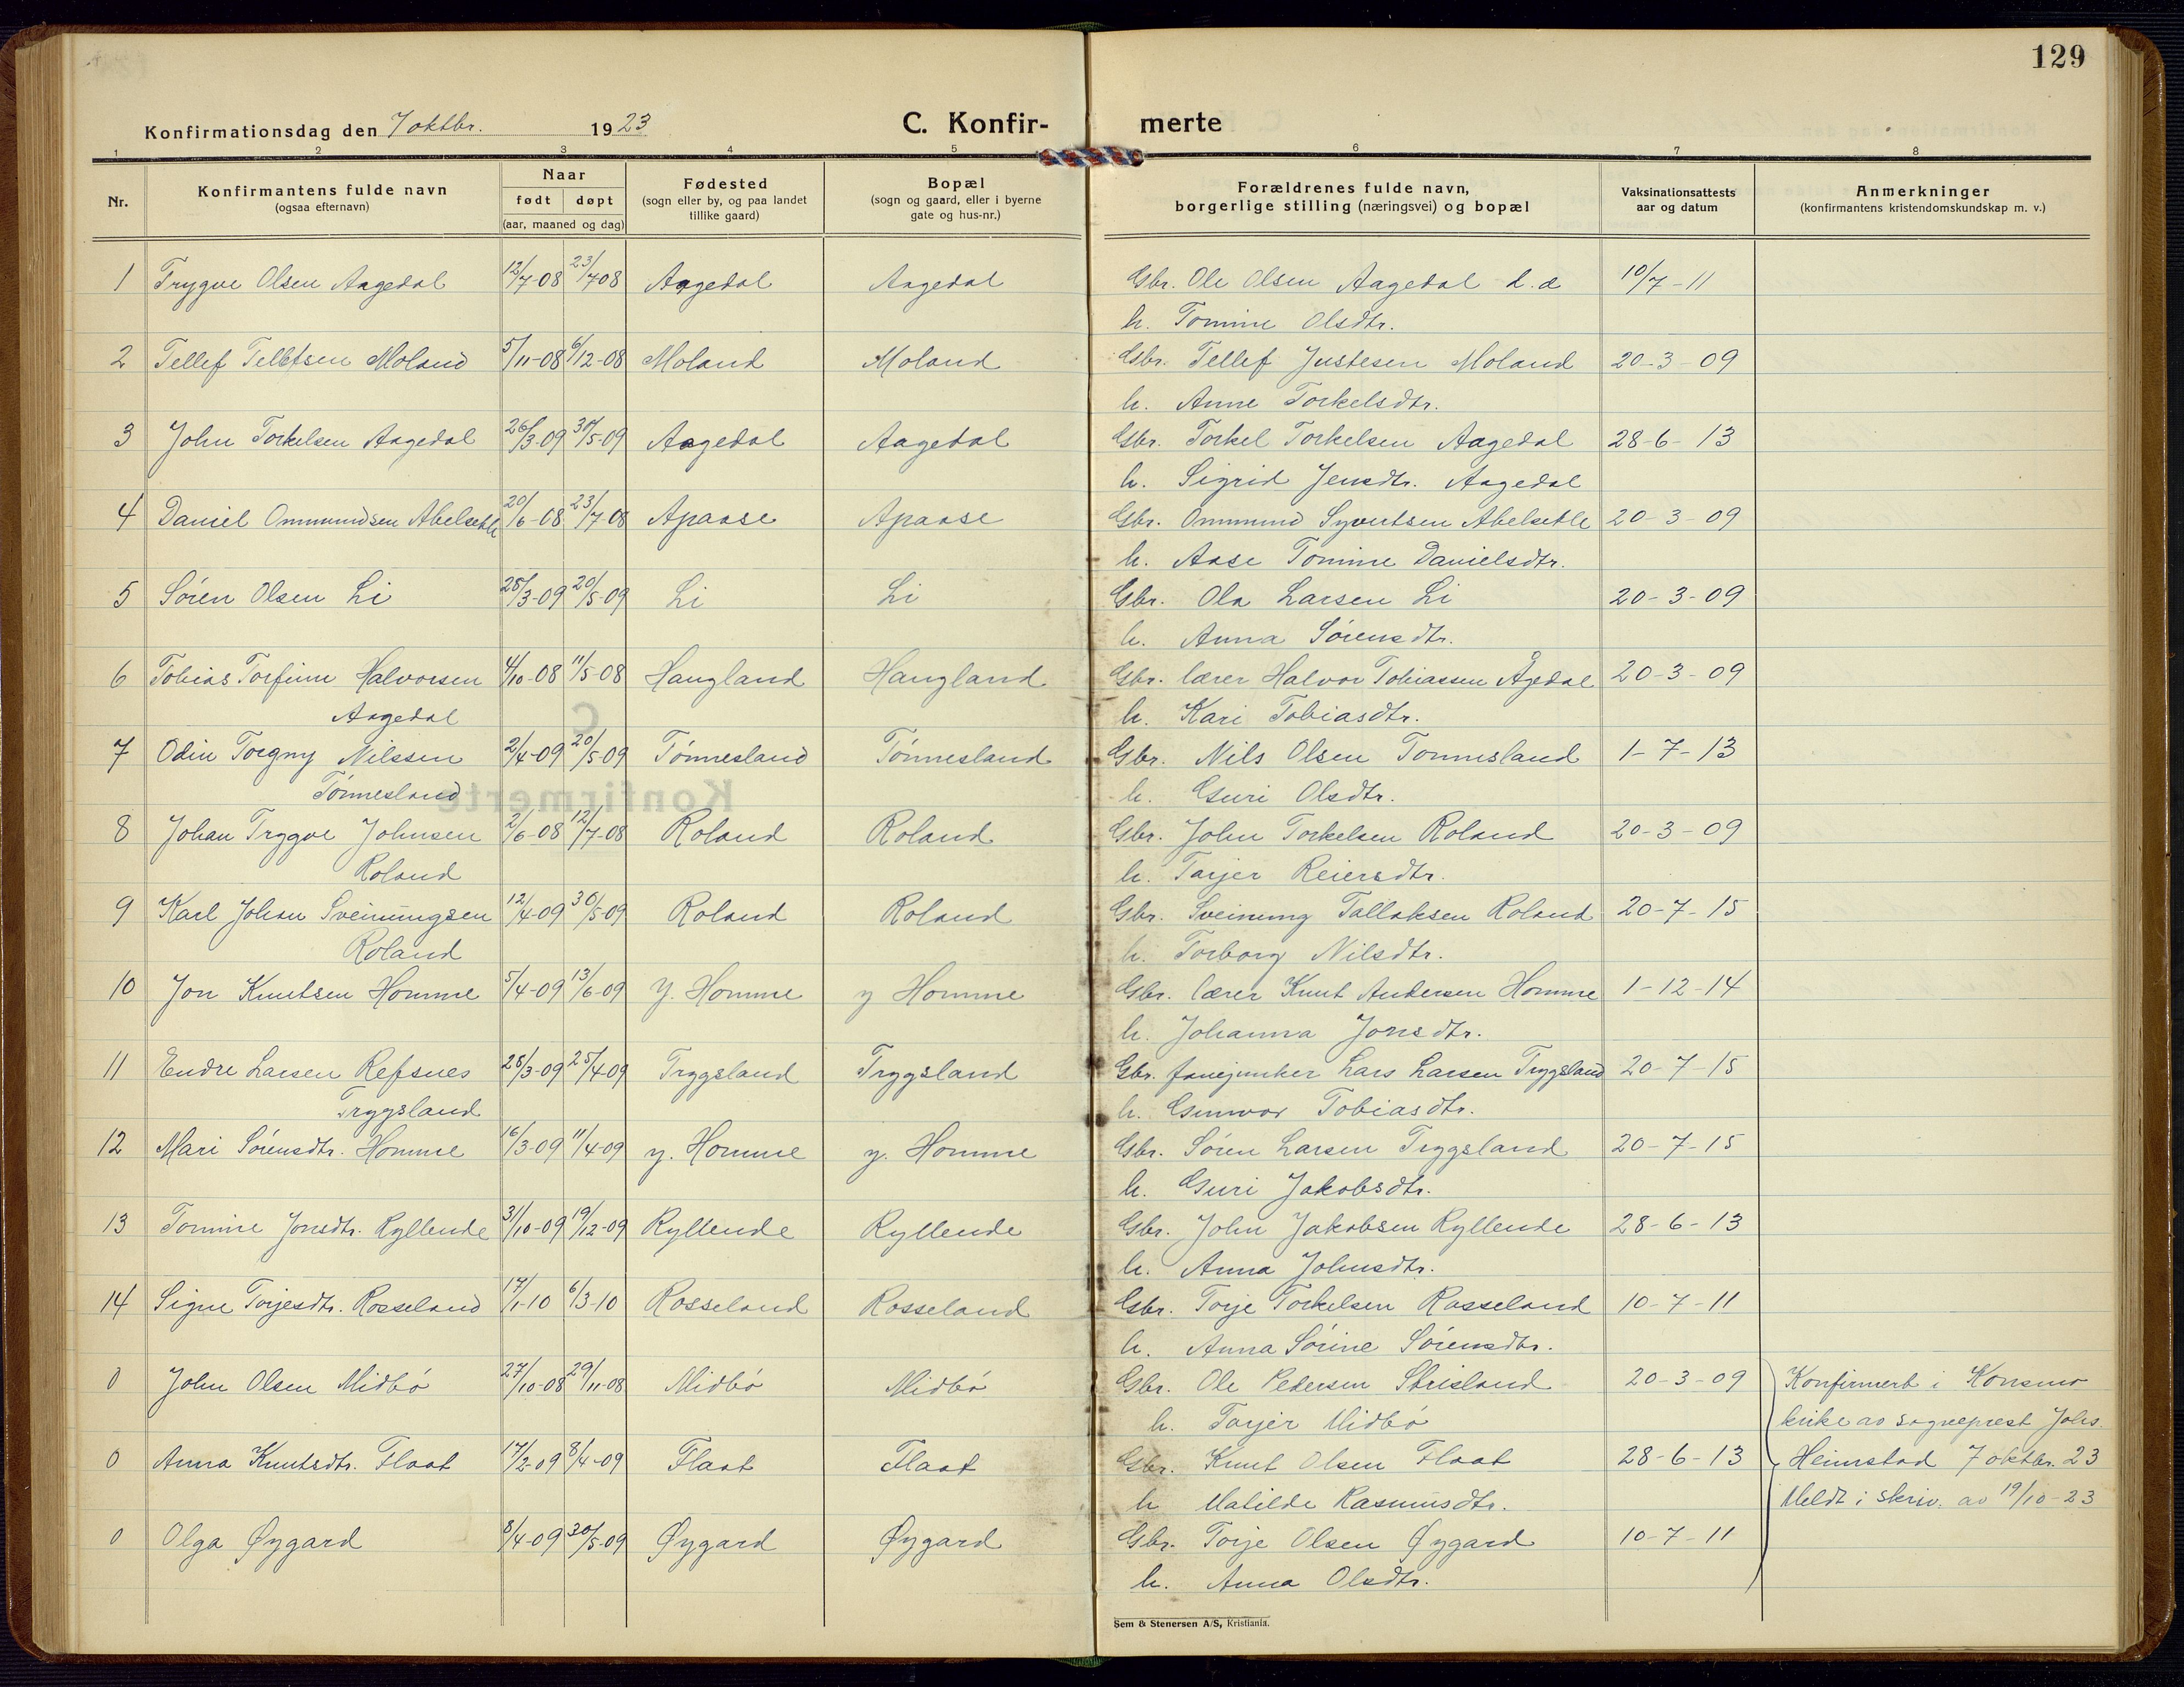 129
Konfirmationsdag den 7 oktbr. 1923 C. Konfir- merte
1 2 3 4 5 6 7 8
Nr. Konfirmantens fulde navn (ogsaa efternavn) Naar født døpt (aar, maaned og dag) Fødested (sogn eller by, og paa landet tillike gaard) Bopæl (sogn og gaard, eller i byerne gate og hus-nr.) Forældrenes fulde navn, borgerlige stilling (næringsvei) og bopæl Vaksinationsattests aar og datum Anmerkninger (konfirmantens kristendomskundskap m. v.)
1 Trygve Olsen Aagedal 12/7-08 23/7 08 Aagedal Aagedal Gbr. Ole Olsen Aagedal d.æ 10/7-11
h. Tomine Olsdtr.
2 Tellef Tellefsen Moland 5/11-08 6/12-08 Moland Moland Gbr. Tellef Justesen Moland 20-3-09
h. Anne Torkelsdtr.
3 John Torkelsen Aagedal 26/3-09 30/5-09 Aagedal Aagedal Gbr. Torkel Torkelsen Aagedal 28-6-13
h. Sigrid Jensdtr. Aagedal
4 Daniel Ommundsen Abelsetle 20/6-08 23/7-08 Apaase Apaase Gbr. Ommund Syvertsen Abelsetle 20-3-09
h. Aase Tomine Danielsdtr.
5 Sören Olsen Li 28/3-09 20/5-09 Li Li Gbr. Ola Larsen Li 20-3-09
h. Anna Sörensdtr.
6 Tobias Torfinn Halvorsen 4/10-08 11/5-08 Haugland Haugland Gbr. lærer Halvor Tobiassen Ågedal 20-3-09
Aagedal h. Kari Tobiasdtr.
7 Odin Torgny Nilssen 2/4-09 20/5-09 Tönnesland Tönnesland Gbr. Nils Olsen Tonnesland 1-7-13
Tönnesland h. Guri Olsdtr.
8 Johan Trygve Johnsen 2/6-08 12/7-08 Roland Roland Gbr. John Torkelsen Roland 20-3-09
Roland h. Tarjer Reiersdtr.
9 Karl Johan Sveinungsen 12/4-09 30/5-09 Roland Roland Gbr. Sveinung Tallaksen Roland 20-7-15
Roland h. Torborg Nilsdtr.
10 Jon Knutsen Homme 5/4-09 13/6-09 Y. Homme y Homme Gbr. lærer Knut Andersen Homme 1-12-14
h. Johanna Jonsdtr.
11 Endre Larsen Refsnes 28/3-09 25/4-09 Tryggsland Tryggsland Gbr. fanejunker Lars Larsen Tryggsland 20-7-15
Tryggsland h. Gunvor Tobiasdtr.
12 Mari Sörensdtr. Homme 16/3-09 11/4-09 y. Homme y. Homme Gbr. Sören Larsen Tryggsland 20-7-15
h. Guri Jakobsdtr.
13 Tomine Jonsdtr. Ryllende 31/10-09 19/12-09 Ryllende Ryllende Gbr. John Jakobsen Ryllende 28-6-13
h. Anna Johnsdtr.
14 Signe Torjesdtr. Rosseland 17/1-10 6/3-10 Rosseland Rosseland Gbr. Torje Torkelsen Rosseland 10-7-11
h. Anna Sörine Sörensdtr.
0 John Olsen Midbö 27/10-08 29/11-08 Midbö Midbö Gbr. Ole Pedersen Skrisland 20-3-09 Konfirmert i Konsmo
h. Tarjer Midbö kirke av sogneprest Johs.
0 Anna Knutsdtr. Flaat 17/2-09 8/4-09 Flaat Flaat Gbr. Knut Olsen Flaat 28-6-13 Heimstad 7 oktbr. 23
h Matilde Rasmusdtr. Meldt i skriv. av 19/10-23
0 Olga Øygard 8/4-09 30/5-09 Øygard Øygard Gbr. Torje Olsen Øygard 10-7-11
h. Anna Olsdtr.
Sem & Stenersen A/S, Kristiania.